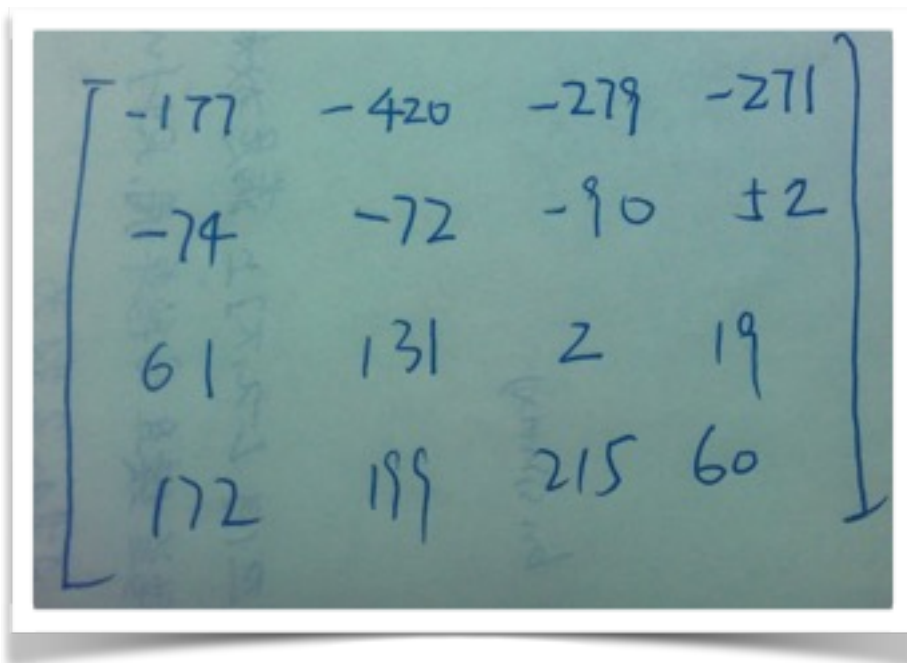 -177 -420 -279 -271
-74 -72 -90 52
61 131 2 19
172 199 215 60